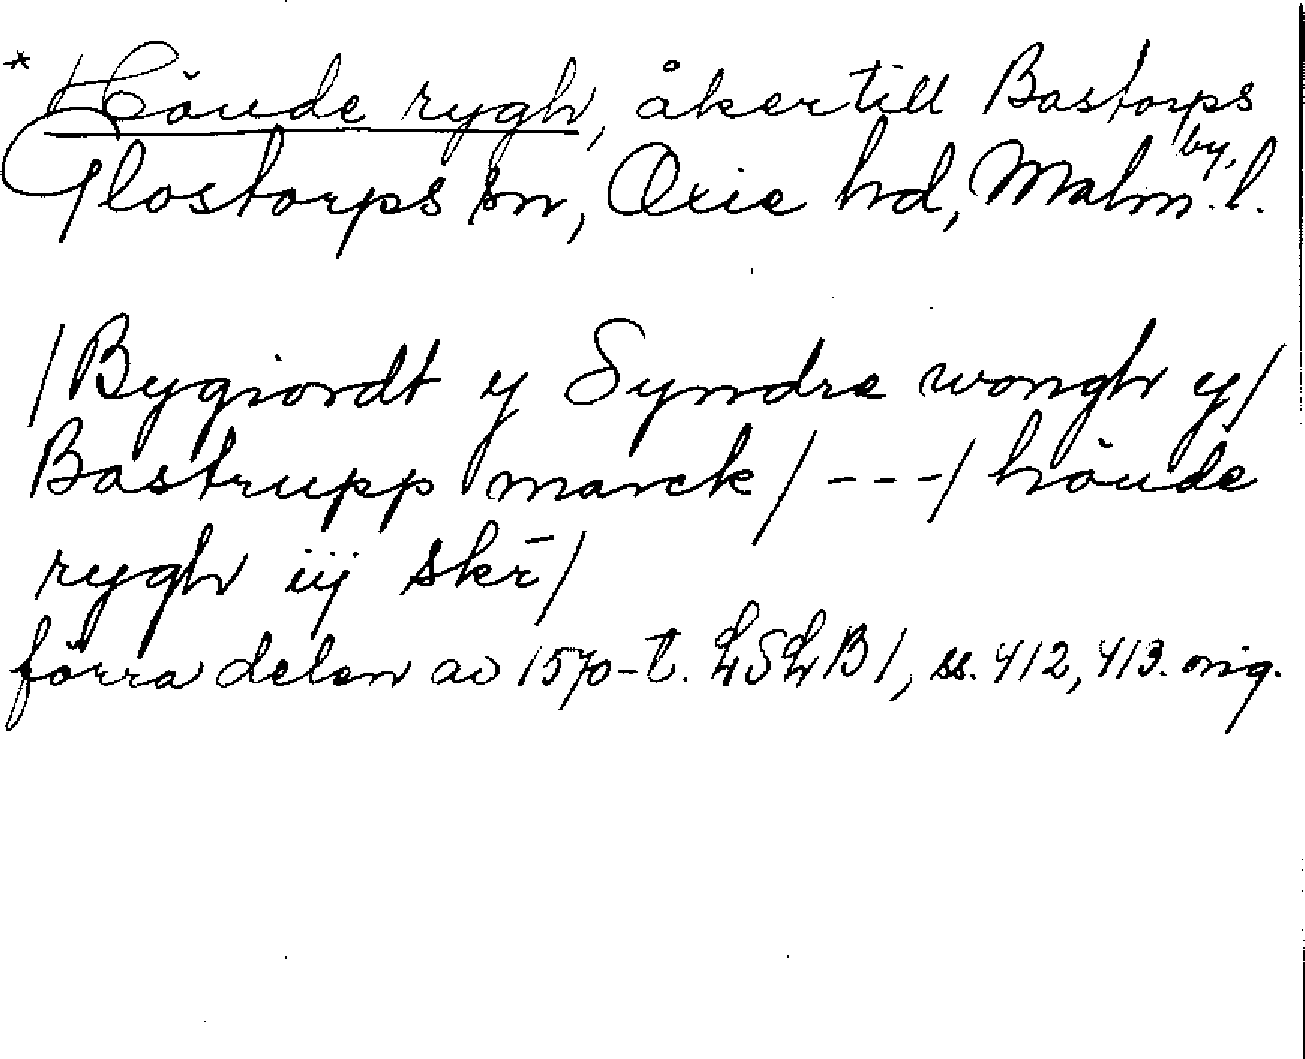 * Höude rygh, åker till Bastorps by,
Glostorps sn, Oxie hd, Malm. l.
/Bygiordt y Syndre wongh y/
Bastrupp marck/ - - -/ höude
rygh iij skr̄/
förra delen av 1570-t. LSLB1, ss. 412, 413. orig.